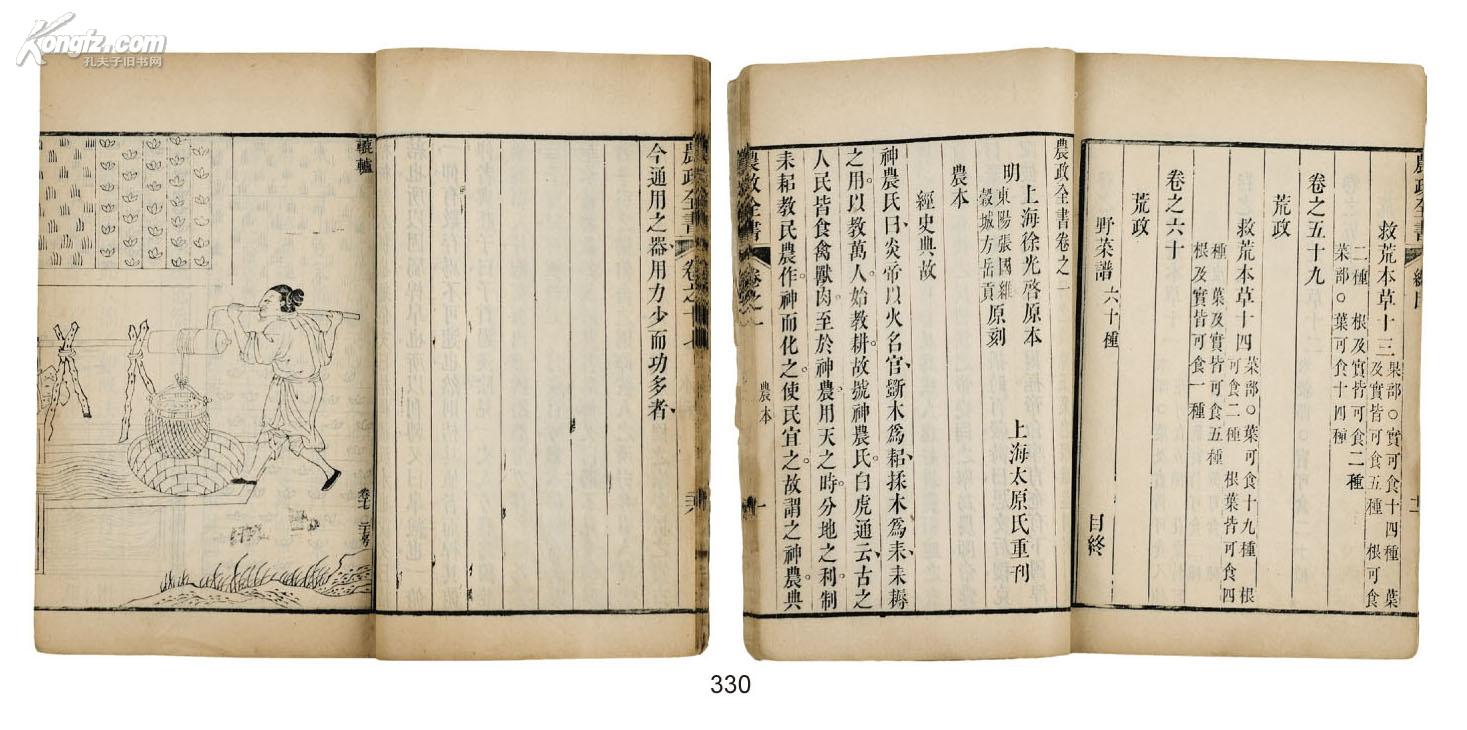 Kongfz.com
孔夫子旧书网
今通用之器用力少而功多者
轆轤
農政全書
救荒本草十三
果部○實可食十四種 葉
及實皆可食五種 根可食
二種 根及實皆可食二種
菜部○葉可食十四種
卷之五十九
荒政
救荒本草十四
菜部○葉可食十九種 根
可食二種 根葉皆可食四
種 葉及實皆可食五種
根及實皆可食一種
卷之六十
荒政
野菜譜六十種
目終
農政全書卷之一
上海徐光啓原本
上海太原氏重刊
明
東陽張國維
穀城方岳貢
原刻
農本
經史典故
神農氏曰炎帝以火名官斵木爲耜揉木爲耒耒耨
之用以教萬人始教耕故號神農氏白虎通云古之
人民皆食禽獸肉至於神農用天之時分地之利制
耒耜教民農作神而化之使民宜之故謂之神農典
農政全書
卷之一
農本
一
330